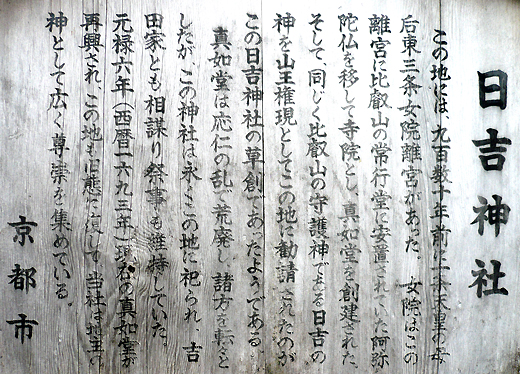 日吉神社
この地には、九百数十年前に一条天皇の母
后東三条女院離宮があった 女院はこの
離宮に比叡山の常行堂に安置されていた阿弥
陀仏を移して寺院とし、真如堂を創建された。
そして、同じく比叡山の守護神である日吉の
神を山王権現としてこの地に勧請されたのが
この日吉神社の草創であったようである。
真如堂は応仁の乱で荒廃し、諸方を転々と
したが、この神社は永くこの地に祀られ、吉
田家とも相謀り祭事も維持していた。
元禄六年(西暦一六九三年)現在の真如堂が
再興され、この地も旧態に復して、当社は地主の
神として広く尊崇を集めている。
京都市